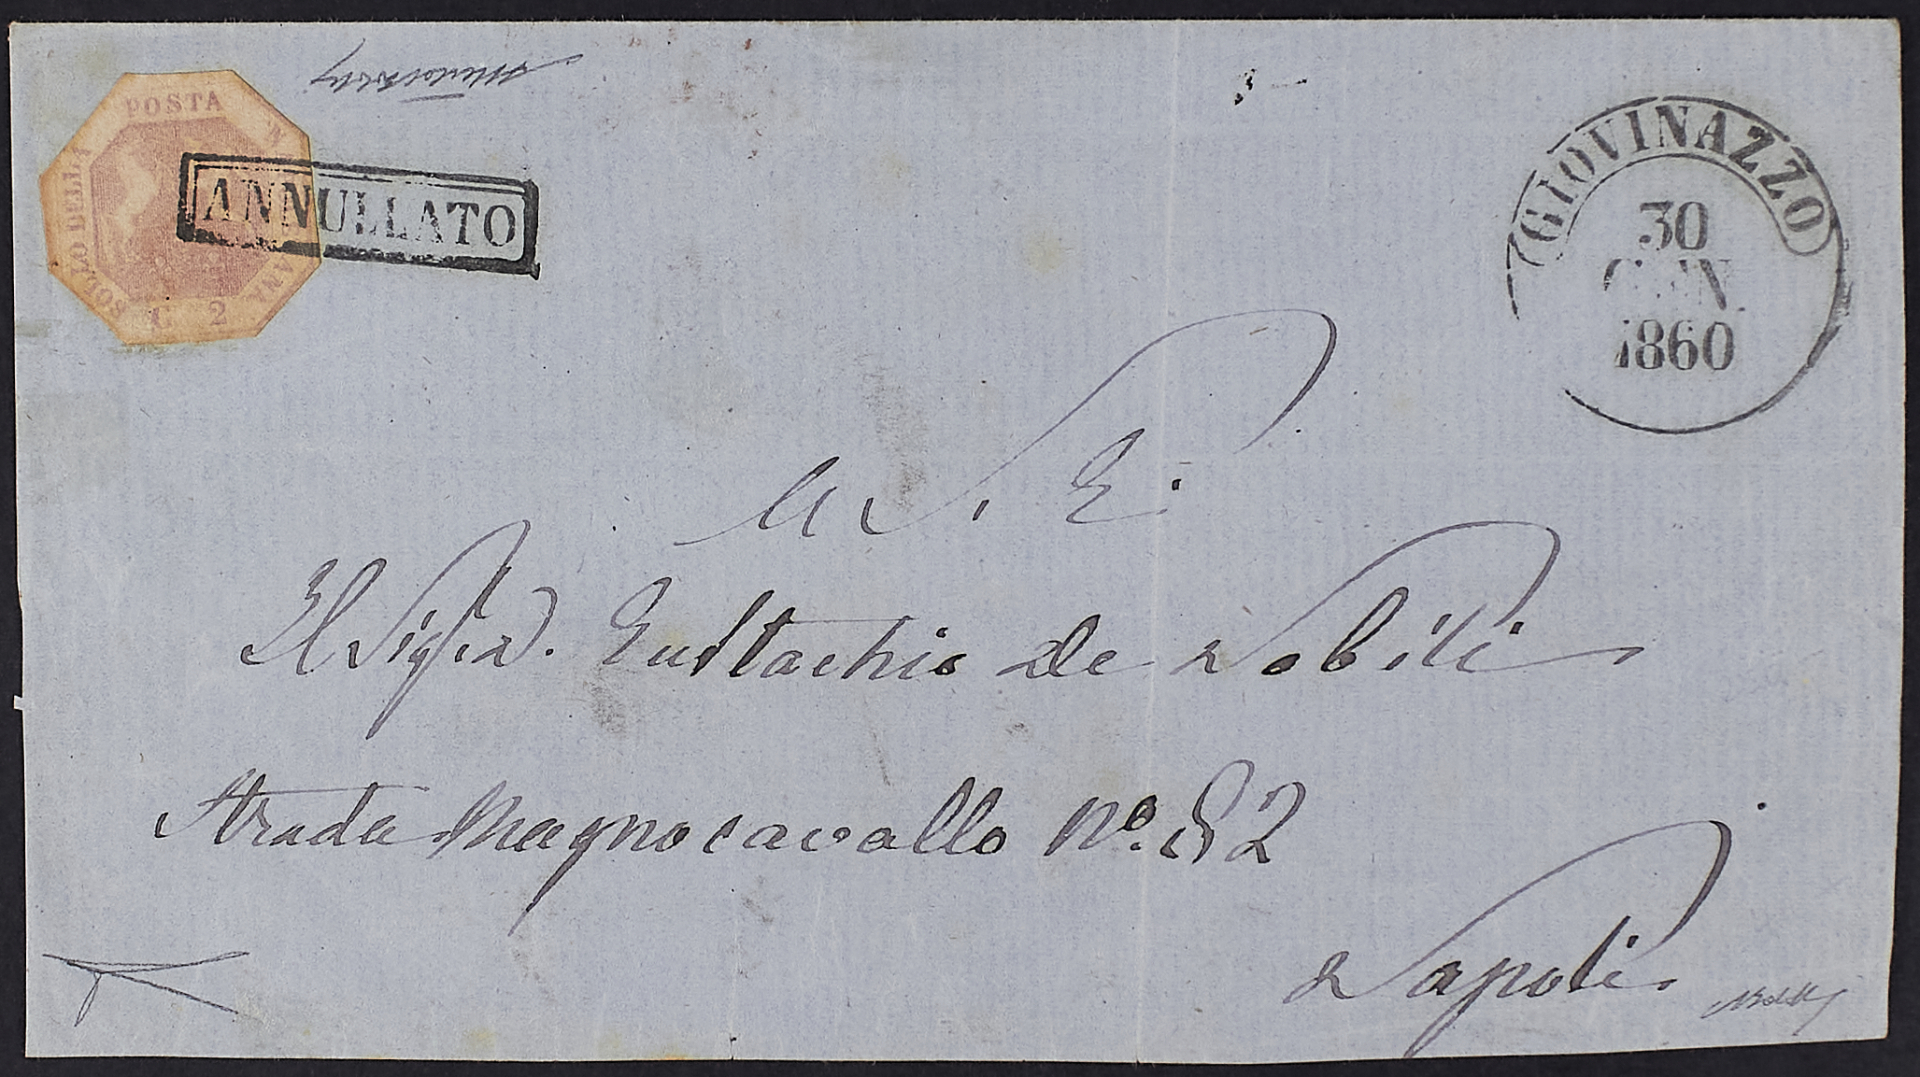 POSTA
BOLLO DELLA
G 2
ANNULLATO
GIOVINAZZO
30
GEN.
1860
A S. E.
Il Sig. D. Eustachio de Nobili
Strada Magnocavallo No. 52
Napoli